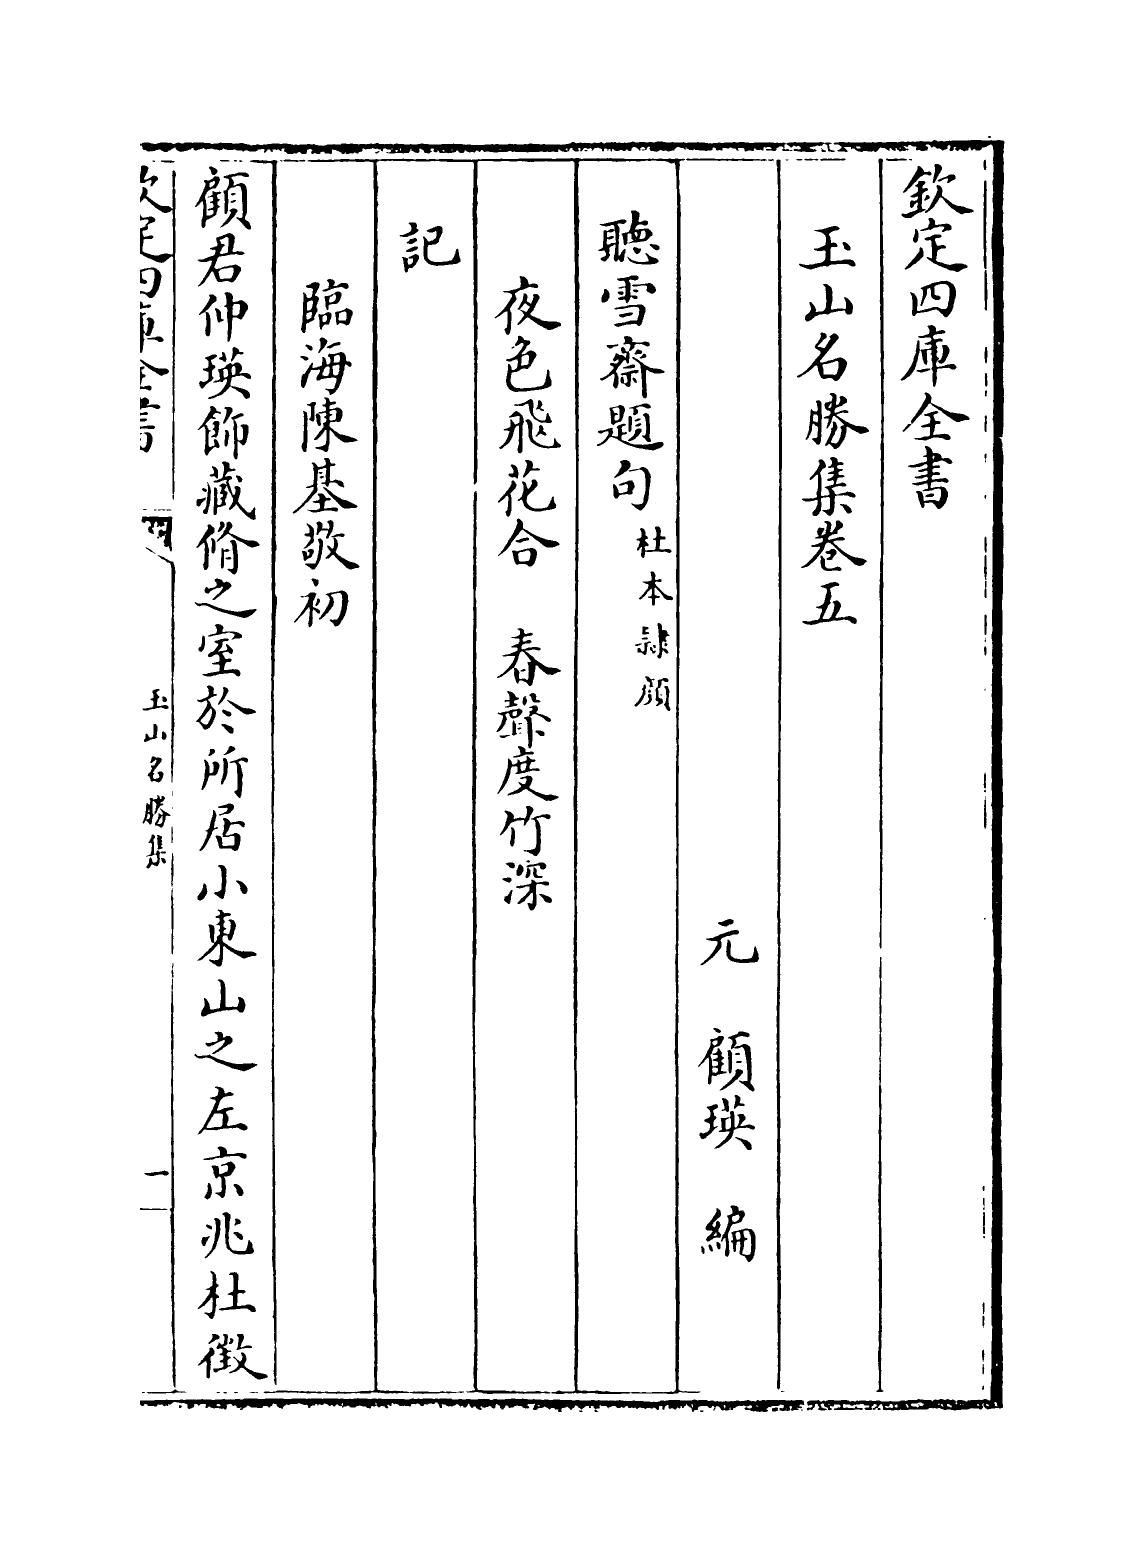 欽定四庫全書
玉山名勝集卷五
元　顧瑛　編
聽雪齋題句杜本隷顔
夜色飛花合　春聲度竹深
記
臨海陳基敬初
顧君仲瑛飾藏脩之室於所居小東山之左京兆杜徵
欽定四庫全書
玉山名勝集
一